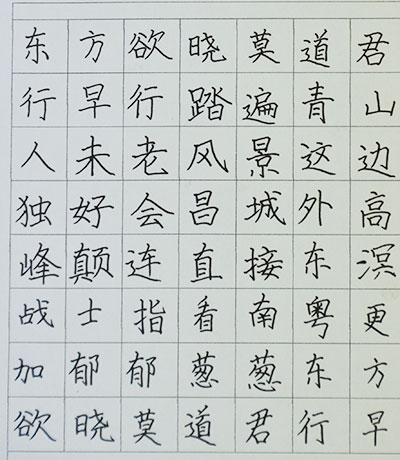 东方欲晓莫道君
行早行踏遍青山
人未老风景这边
独好会昌城外高
峰颠连直接东溟
战士指看南粤更
加郁郁葱葱东方
欲晓莫道君行早